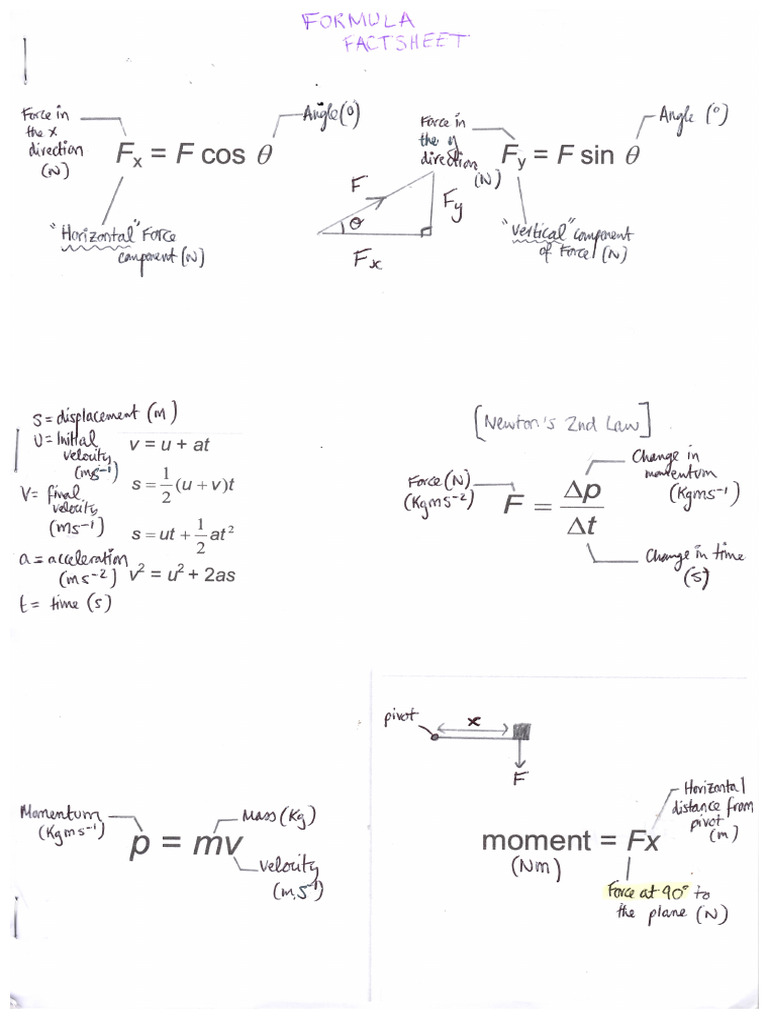 FORMULA
FACTSHEET
Force in
the x
direction
(N)
Angle (°)
Fx = F cos θ
"Horizontal" Force
component (N)
F
θ
Fy
Fx
Force in
the y
direction
(N)
Angle (°)
Fy = F sin θ
"Vertical" component
of Force (N)
S = displacement (m)
U = Initial
velocity
(ms⁻¹)
V = final
velocity
(ms⁻¹)
a = acceleration
(ms⁻²)
t = time (s)
v = u + at
s = ½(u + v)t
s = ut + ½at²
v² = u² + 2as
[Newton's 2nd Law]
Force (N)
(Kgms⁻²)
F = Δp/Δt
Change in
momentum
(Kgms⁻¹)
Change in time
(s)
Momentum
(Kgms⁻¹)
Mass (Kg)
p = mv
velocity
(m,s⁻¹)
pivot
x
F
Horizontal
distance from
pivot
(m)
moment = Fx
(Nm)
Force at 90° to
the plane (N)